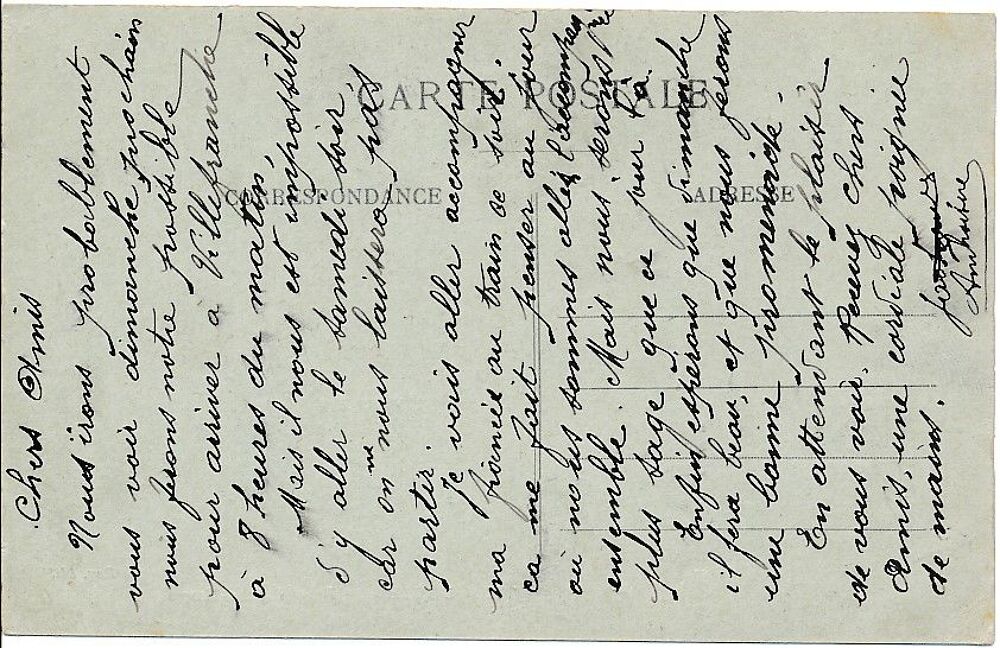 CARTE POSTALE
CORRESPONDANCE
ADRESSE
Chers Amis
Nous irons probablement
vous voir dimanche prochain
nous ferons notre possible
pour arriver à Villefranche
à 8 heures du matin.
Mais il nous est impossible
d'y aller le samedi soir
car on ne nous laissera pas
partir.
Je vais aller accompagner
ma fiancée au train ce soir.
ca me fait penser au jour
ou nous sommes allés
ensemble. Mais nous serons
plus sage que ce jour là.
Enfin espérons que dimanche
il fera beau, et que nous ferons
une bonne promenade.
En attendant le plaisir
de vous voir. Recevez chers
Amis, une cordiale poignée
de mains.